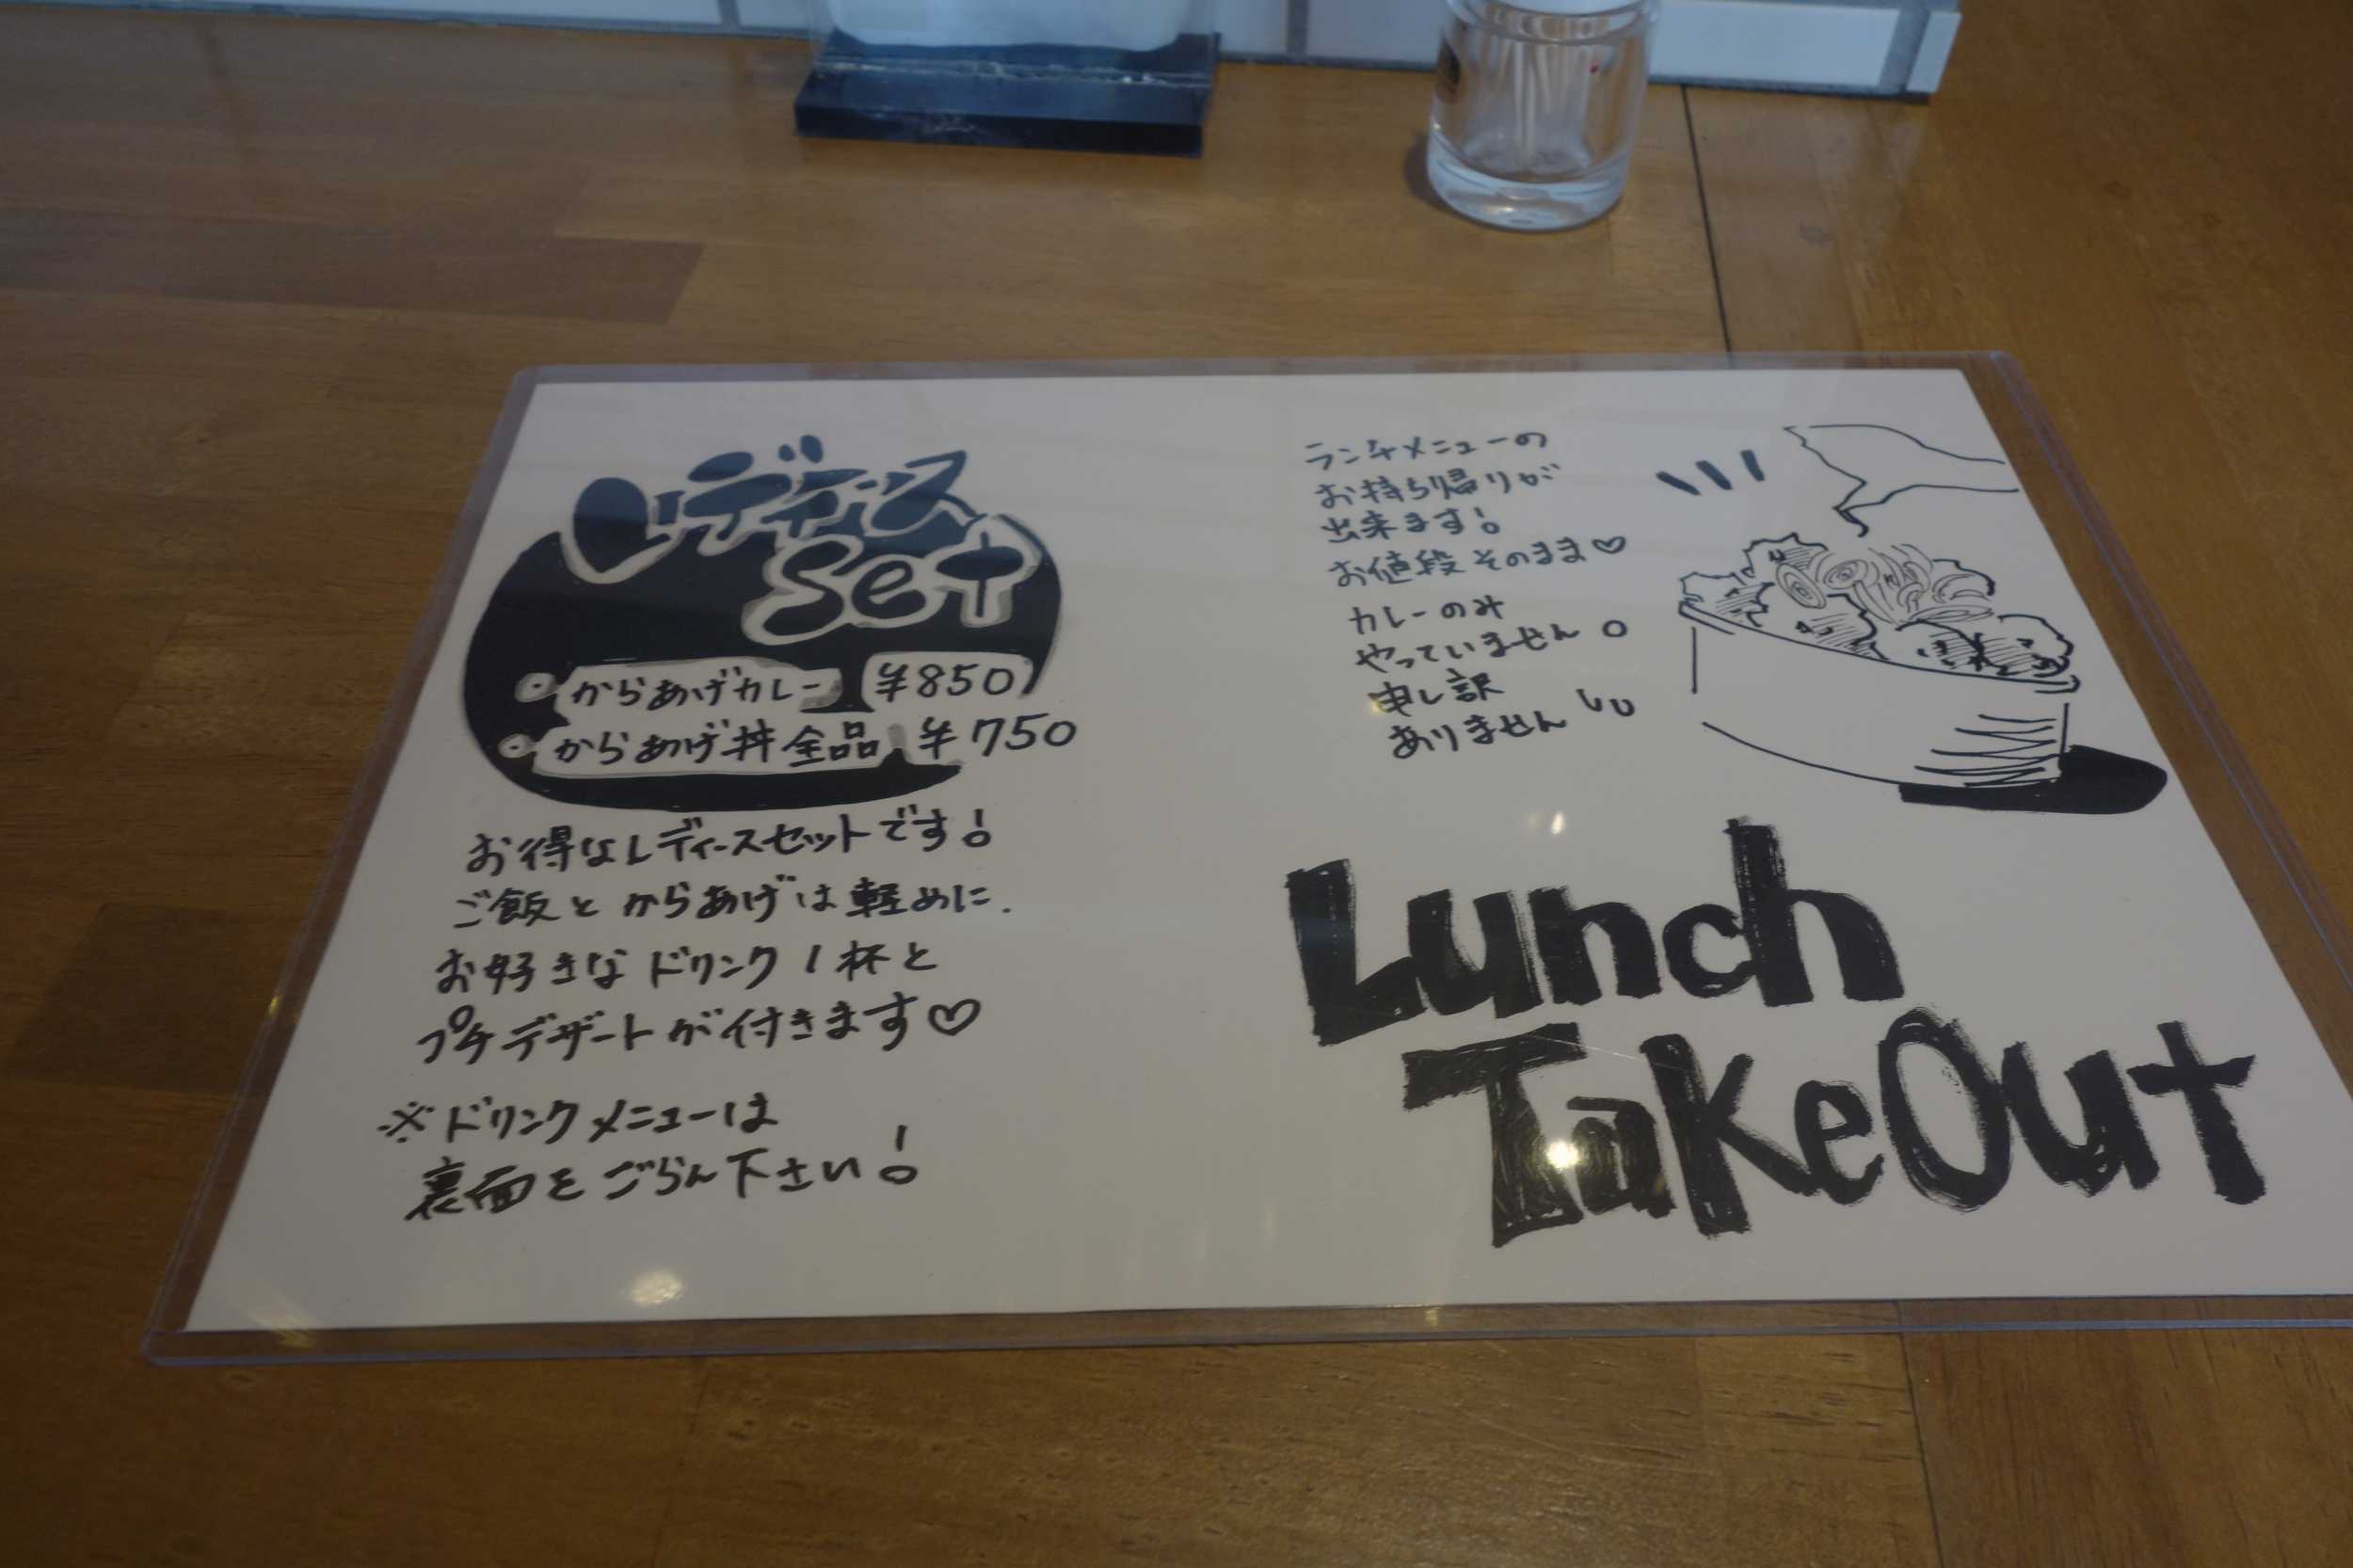 レディース
set
からあげカレー ¥850
からあげ丼全品 ¥750
お得なレディースセットです!
ご飯とからあげは軽めに.
お好きなドリンク1杯と
プチデザートが付きます♡
※ドリンクメニューは
裏面をごらん下さい!
ランチメニューの
お持ち帰りが
出来ます!
お値段そのまま♡
カレーのみ
やっていません。
申し訳
ありません
Lunch
TakeOut